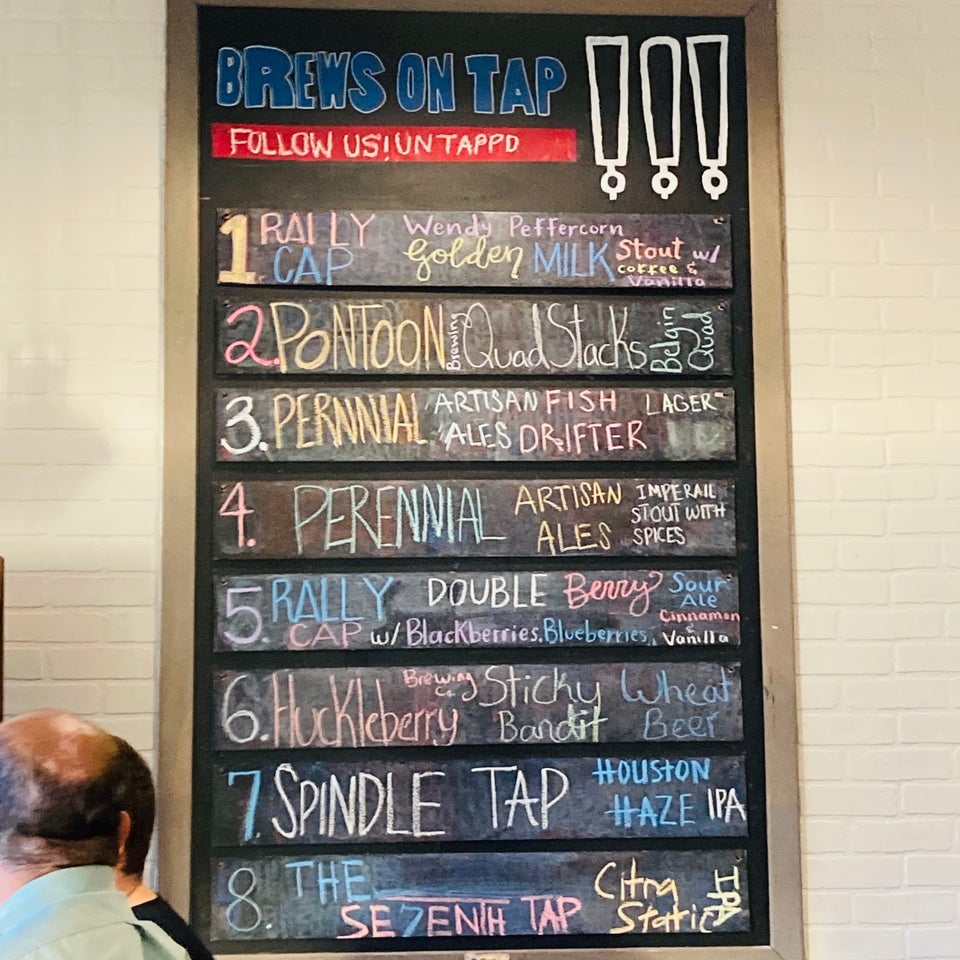 BREWS ON TAP
FOLLOW US! UNTAPPD
!!!
1 RALLY CAP Wendy Peffercorn Golden MILK Stout w/ coffee & Vanilla
2. PONTOON Brewing Quad Stacks Belgin Quad
3. PERNNIAL ARTISAN ALES FISH DRIFTER LAGER
4. PERENNIAL ARTISAN ALES IMPERAIL STOUT WITH SPICES
5. RALLY CAP DOUBLE Berry Sour Ale w/ Blackberries, Blueberries, Cinnamon & Vanilla
6. Huckleberry Brewing Co. Sticky Bandit Wheat Beer
7. SPINDLE TAP HOUSTON HAZE IPA
8. THE SE7ENTH TAP Citra Static IPA